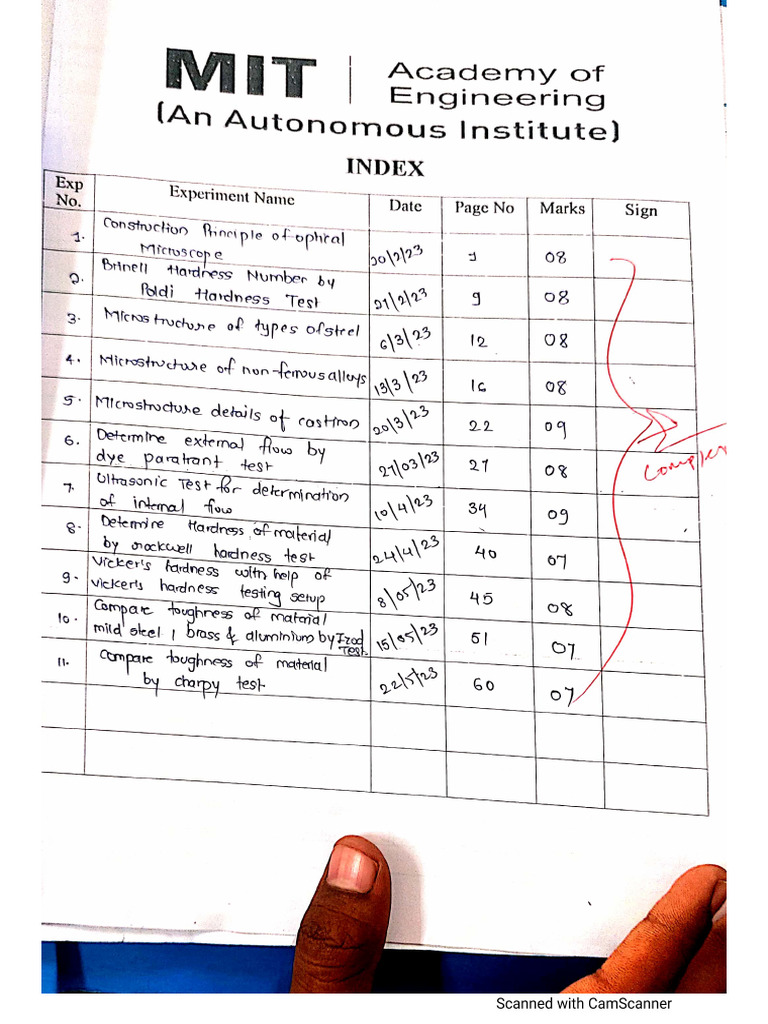 MIT | Academy of
Engineering
(An Autonomous Institute)
INDEX
Exp No. Experiment Name Date Page No Marks Sign
1. Construction Principle of optical
Microscope 20/2/23 1 08
2. Brinell Hardness Number by
Poldi Hardness Test 27/2/23 9 08
3. Microstructure of types of steel 6/3/23 12 08
4. Microstructure of non-ferrous alloys 13/3/23 16 08
5. Microstructure details of castiron 20/3/23 22 09
6. Determine external flow by
dye paratrant test 27/03/23 27 08
7. Ultrasonic Test for determination
of internal flow 10/4/23 34 09
8. Determine Hardness of material
by rockwell hardness test 24/4/23 40 07
9. Vicker's hardness with help of
vicker's hardness testing setup 8/05/23 45 08
10. Compare toughness of material
mild steel | brass & aluminium by Izod
Test 15/05/23 51 07
11. Compare toughness of material
by charpy test 22/5/23 60 07
Scanned with CamScanner